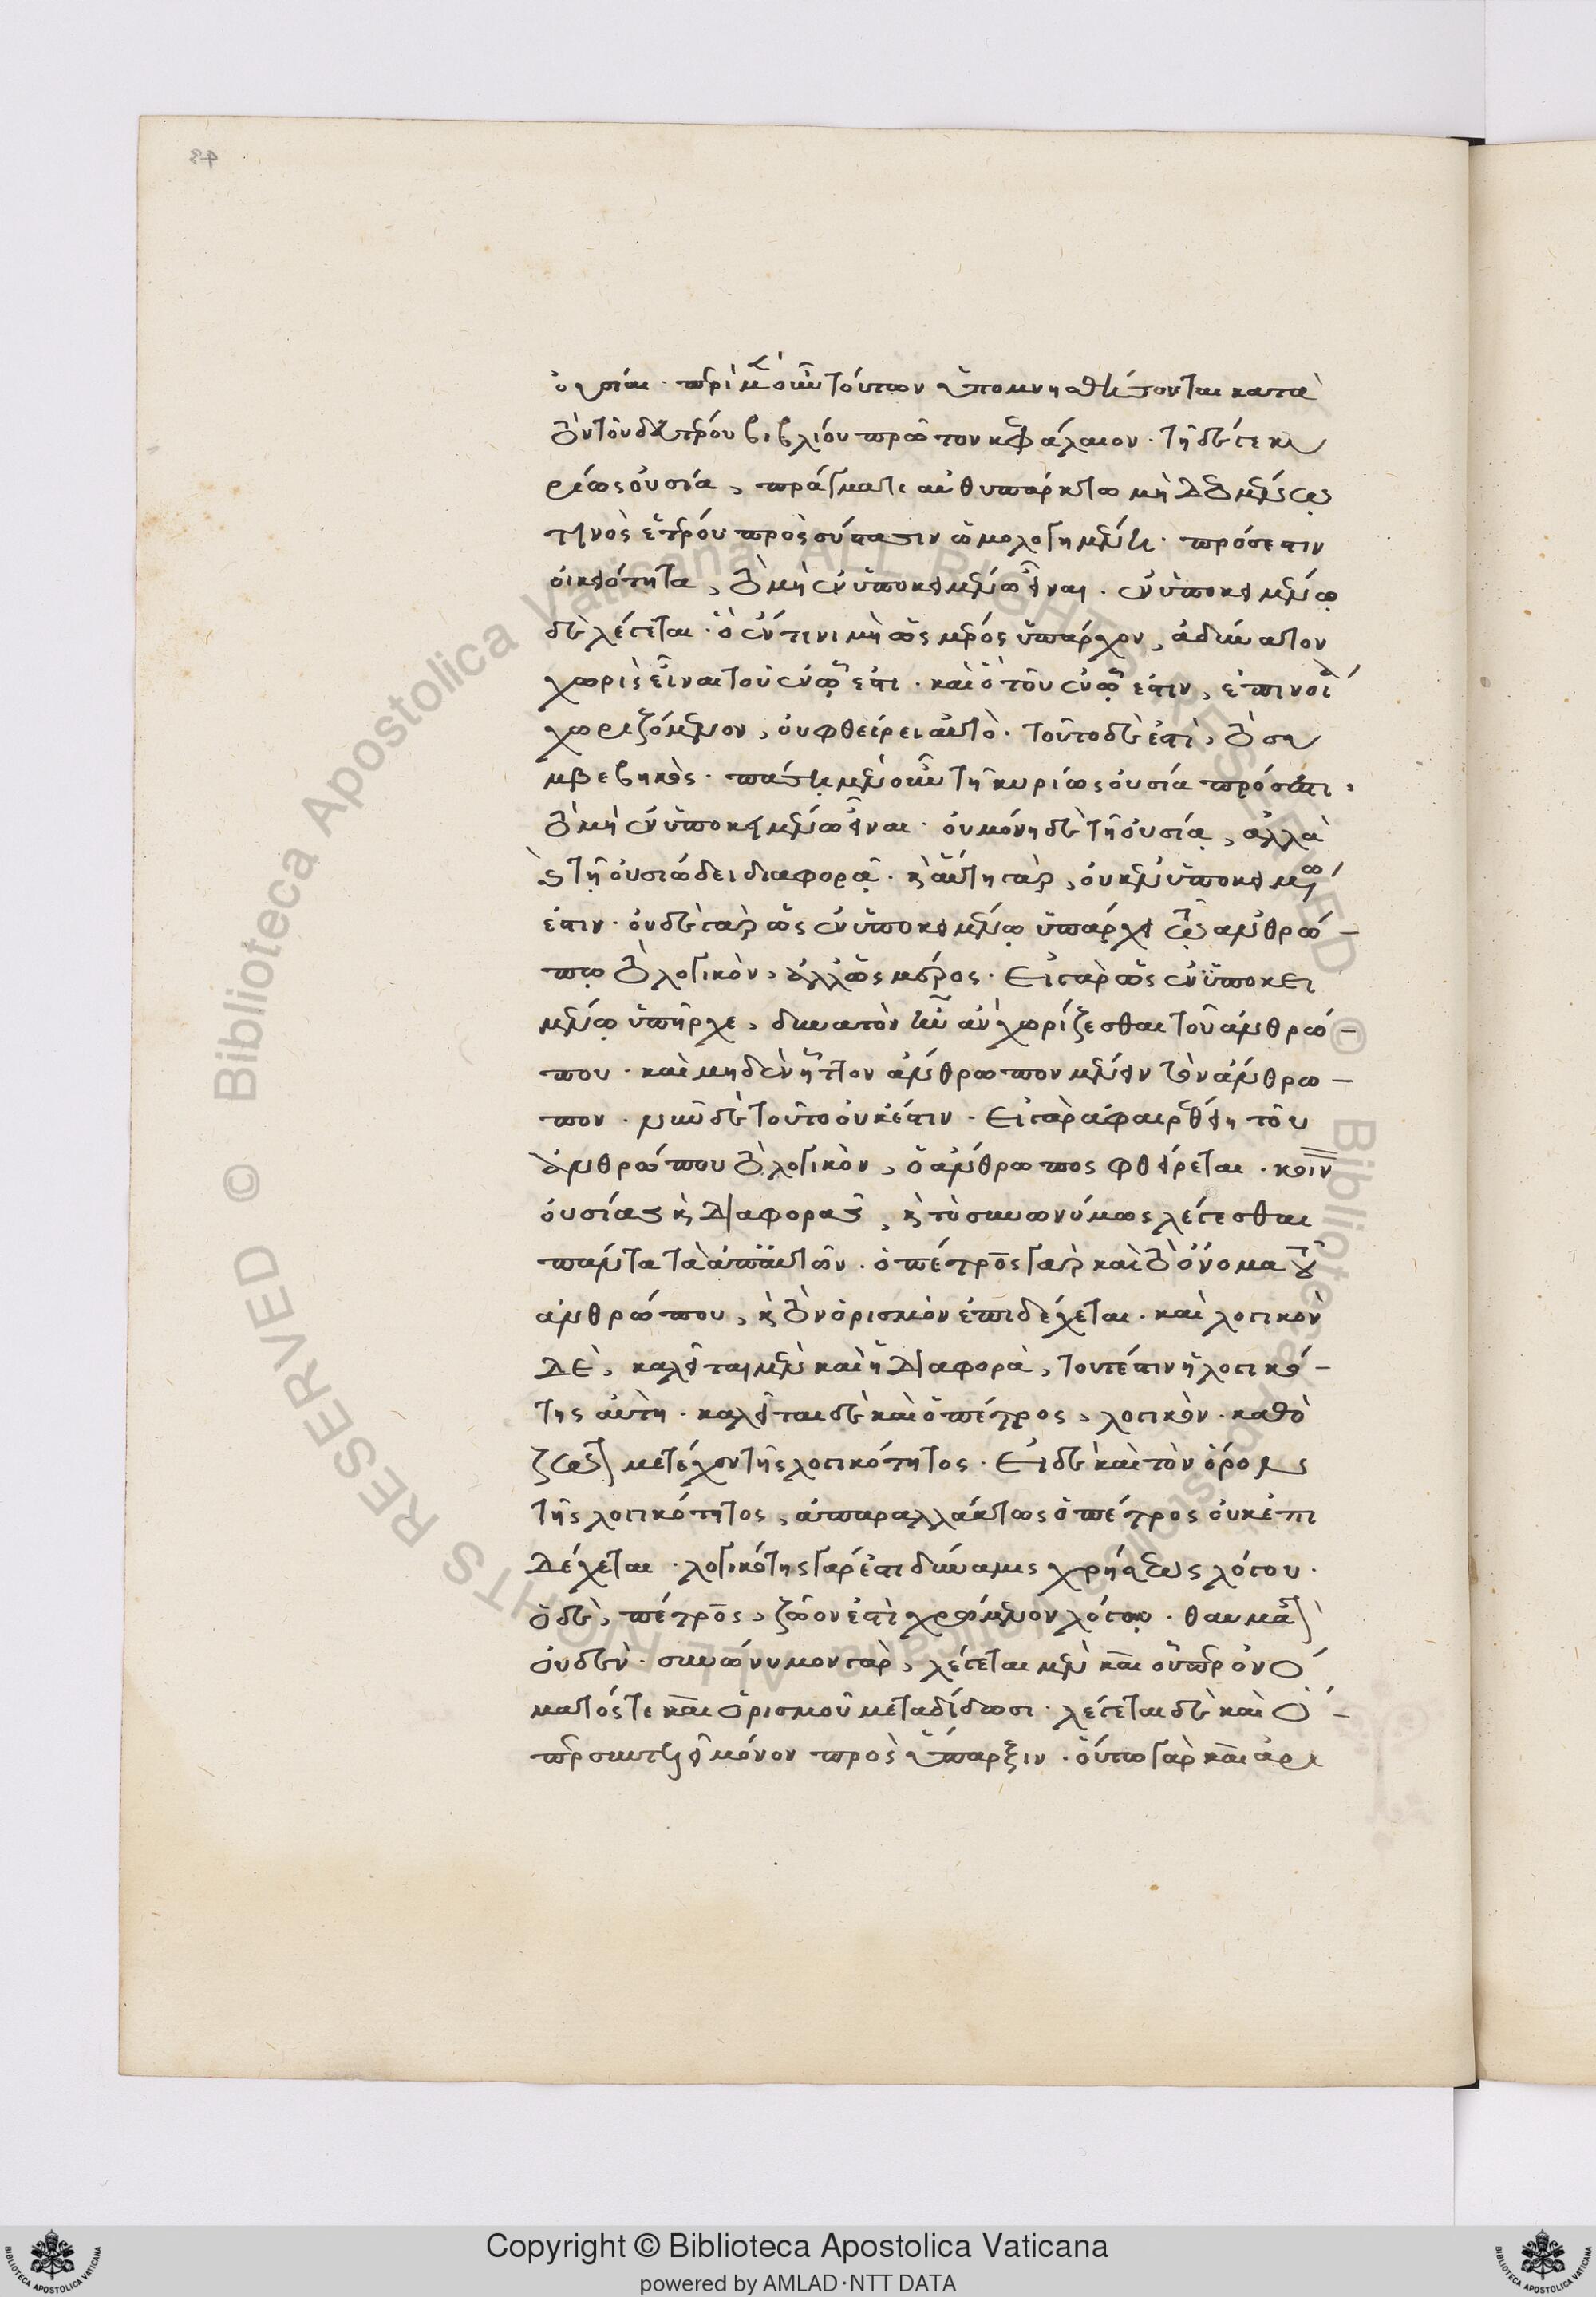 οὐσίαι. περὶ μὲν οὖν τούτων ὑπομνησθήσονται κατὰ
τὸν τοῦ δευτέρου βιβλίου πρῶτον κεφάλαιον. τῇ δέ γε κυ
ρίως οὐσία, πράγματι αὐθυπάρκτω μὴ δεομένω
τινὸς ἑτέρου πρὸς σύστασιν ὡμολογημένη. πρόσεστιν
οἰκειότητα, τὸ μὴ ἐν ὑποκειμένω εἶναι. ἐν ὑποκειμένω
δὲ λέγεται. ὃ ἔν τινι μὴ ὡς μέρος ὑπάρχον, ἀδύνατον
χωρὶς εἶναι τοῦ ἐν ᾧ ἐστι. καὶ ὃ τοῦ ἐν ᾧ ἐστιν, ἐπινοία
χωριζόμενον, οὐ φθείρει αὐτὸ. τοῦτο δὲ ἐστὶ, τὸ συ
μβεβηκὸς. πάση μὲν οὖν τῇ κυρίως οὐσία πρόσεστι,
τὸ μὴ ἐν ὑποκειμένω εἶναι. οὐ μόνη δὲ τῇ οὐσίᾳ, ἀλλὰ
καὶ τῇ οὐσιώδει διαφορᾷ. καὶ αὕτη γὰρ, οὐκ ἐν ὑποκειμένω
ἐστιν. οὐδὲ γὰρ ὡς ἐν ὑποκειμένω ὑπάρχει τῷ ἀνθρώ-
πω τὸ λογικὸν, ἀλλ' ὡς μέρος. εἰ γὰρ ὡς ἐν ὑποκει
μένω ὑπῆρχε, δυνατὸν ἦν ἂν χωρίζεσθαι τοῦ ἀνθρώ-
που. καὶ μηδὲν ἧττον ἄνθρωπον μένειν τὸν ἄνθρω-
πον. νῦν δὲ τοῦτο οὐκ ἔστιν. εἰ γὰρ ἀφαιρεθείη τοῦ
ἀνθρώπου τὸ λογικὸν, ὁ ἄνθρωπος φθείρεται. κοινὸν
οὐσίας καὶ διαφορᾶς, καὶ τὸ συνωνύμως λέγεσθαι
πάντα τὰ ἀπ' αὐτῶν. ὁ πέτρος γὰρ καὶ τὸ ὄνομα τοῦ
ἀνθρώπου, καὶ τὸν ὁρισμὸν ἐπιδέχεται. καὶ λογικὸν
δὲ, καλεῖται μὲν καὶ ἡ διαφορὰ, τουτέστιν ἡ λογικό-
της αὐτὴ. καλεῖται δὲ καὶ ὁ πέτρος, λογικὸν. καθὸ
ζῶόν ἐστι μετέχον τῆς λογικότητος. εἰ δὲ καὶ τὸν ὅρον
τῆς λογικότητος, ἀπαραλλάκτως ὁ πέτρος οὐκέτι
δέχεται. λογικότης γάρ ἐστι δύναμις χρήσεως λόγου.
ὁ δὲ, πέτρος, ζῶον ἐστὶ χρώμενον λόγω. θαυμαστὸν
οὐδὲν. συνώνυμον γὰρ, λέγεται μὲν καὶ οὗπερ ὀνό
ματός τε καὶ ὁρισμοῦ μεταδίδωσι. λέγεται δὲ καὶ ὅ-
περ συντελεῖ μόνον πρὸς ὕπαρξιν. οὕτω γὰρ καὶ ἀρι